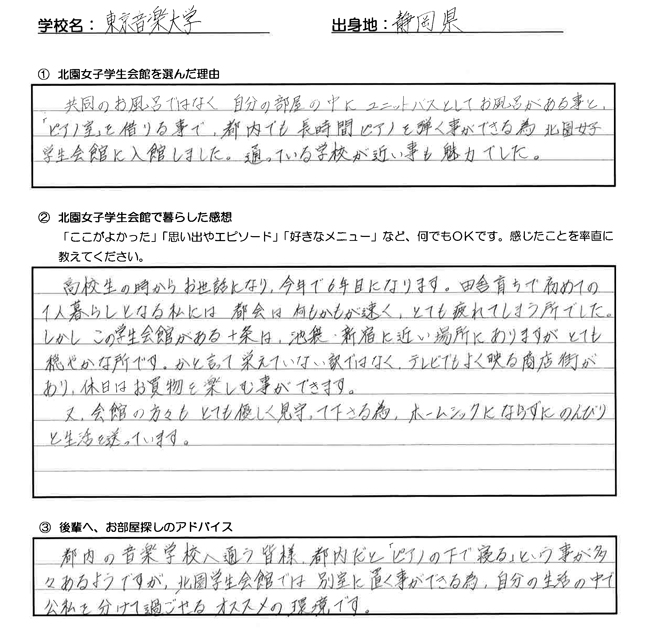 学校名：東京音楽大学 出身地：静岡県
① 北園女子学生会館を選んだ理由
共同のお風呂ではなく 自分の部屋の中に ユニットバスとしてお風呂がある事と、
「ピアノ室」を借りる事で、都内でも長時間ピアノを弾く事ができる為 北園女子
学生会館に入館しました。通っている学校が近い事も魅力でした。
② 北園女子学生会館で暮らした感想
「ここがよかった」「思い出やエピソード」「好きなメニュー」など、何でもＯＫです。感じたことを率直に
教えてください。
高校生の時からお世話になり、今年で6年目になります。田舎育ちで初めての
1人暮らしとなる私には 都会は何もかもが速く、とても疲れてしまう所でした。
しかし この学生会館がある十条は、池袋・新宿に近い場所にありますが とても
穏やかな所です。かと言って栄えていない訳ではなく、テレビでもよく映る商店街が
あり、休日はお買物を楽しむ事ができます。
又、会館の方々も とても優しく見守って下さる為、ホームシックにならずに のんびり
と生活を送っています。
③ 後輩へ、お部屋探しのアドバイス
都内の音楽学校へ通う皆様、都内だと「ピアノの下で寝る」という事が多
々あるようですが、北園学生会館では 別室に置く事ができる為、自分の生活の中で
公私を分けて過ごせる オススメの環境です。